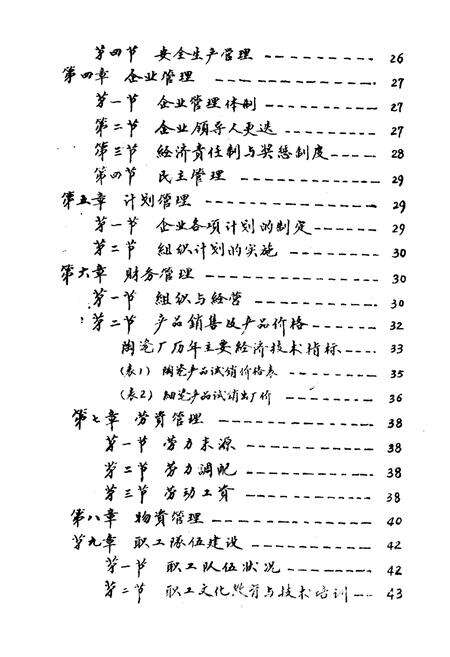 第四节 安全生产管理 ------------ 26
第四章 企业管理 --------------- 27
第一节 企业管理体制 ------------ 27
第二节 企业领导人更迭 -------- 27
第三节 经济责任制与奖惩制度 ----- 28
第四节 民主管理 -------------- 29
第五章 计划管理 --------------- 29
第一节 企业各项计划的制定 ------ 29
第二节 组织计划的实施 --------- 30
第六章 财务管理 --------------- 30
第一节 组织与经营 ------------ 30
第二节 产品銷售及产品价格 ------ 32
陶瓷厂历年主要经济技术指标 ---- 33
(表1) 陶瓷产品试销价格表 ------ 35
(表2) 细瓷产品试销出厂价 ------ 36
第七章 劳資管理 --------------- 38
第一节 劳力来源 ------------- 38
第二节 劳力调配 ------------- 38
第三节 劳动工资 ------------- 38
第八章 物資管理 --------------- 40
第九章 职工隊伍建设 ----------- 42
第一节 职工队伍状况 --------- 42
第二节 职工文化教育与技术培训 --- 43